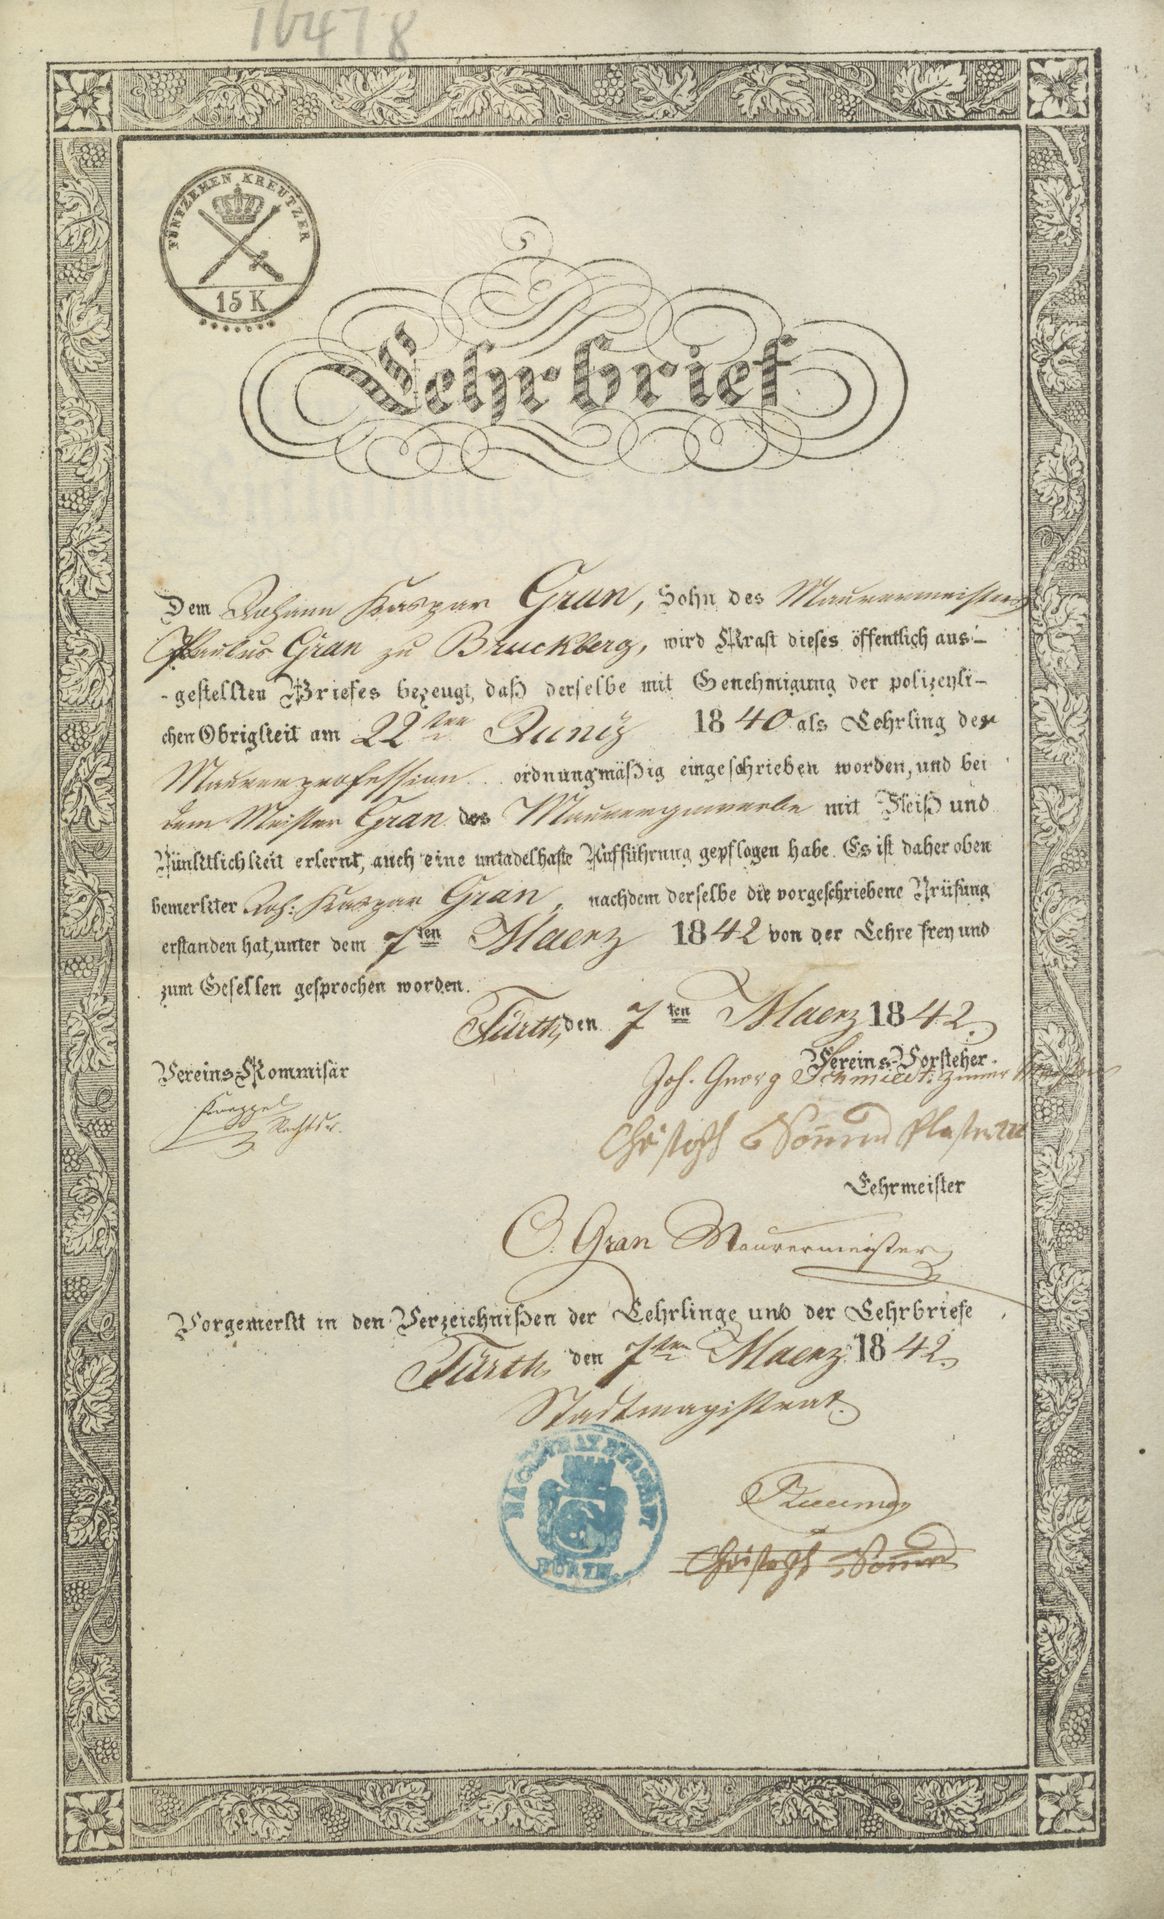 16478
FÜNFZEHEN KREUTZER
15 K
Lehrbrief
Dem Johann Kaspar Gran, Sohn des Maurermeisters
Paulus Gran zu Bruckberg, wird Kraft dieses öffentlich aus-
-gestellten Briefes bezeugt, daß derselbe mit Genehmigung der polizeyli-
chen Obrigkeit am 22ten Juny 1840 als Lehrling der
Maurerprofession ordnungmäßig eingeschrieben worden, und bei
dem Meister Gran das Maurergewerbe mit Fleiß und
Pünktlichkeit erlernt, auch eine untadelhafte Aufführung gepflogen habe. Es ist daher oben
bemerkter Joh: Kaspar Gran, nachdem derselbe die vorgeschriebene Prüfung
erstanden hat, unter dem 7ten Maerz 1842 von der Lehre frey und
zum Gesellen gesprochen worden.
Fürth, den 7ten Maerz 1842.
Vereins-Vorsteher.
Vereins-Kommisär
Joh. Georg Schmidt
Christoph
Lehrmeister
Gran Maurermeister
Vorgemerkt in den Verzeichnißen der Lehrlinge und der Lehrbriefe
Fürth, den 7ten Maerz 1842.
Stadtmagistrat.
MAGISTRAT DER STADT
FÜRTH.
Christoph